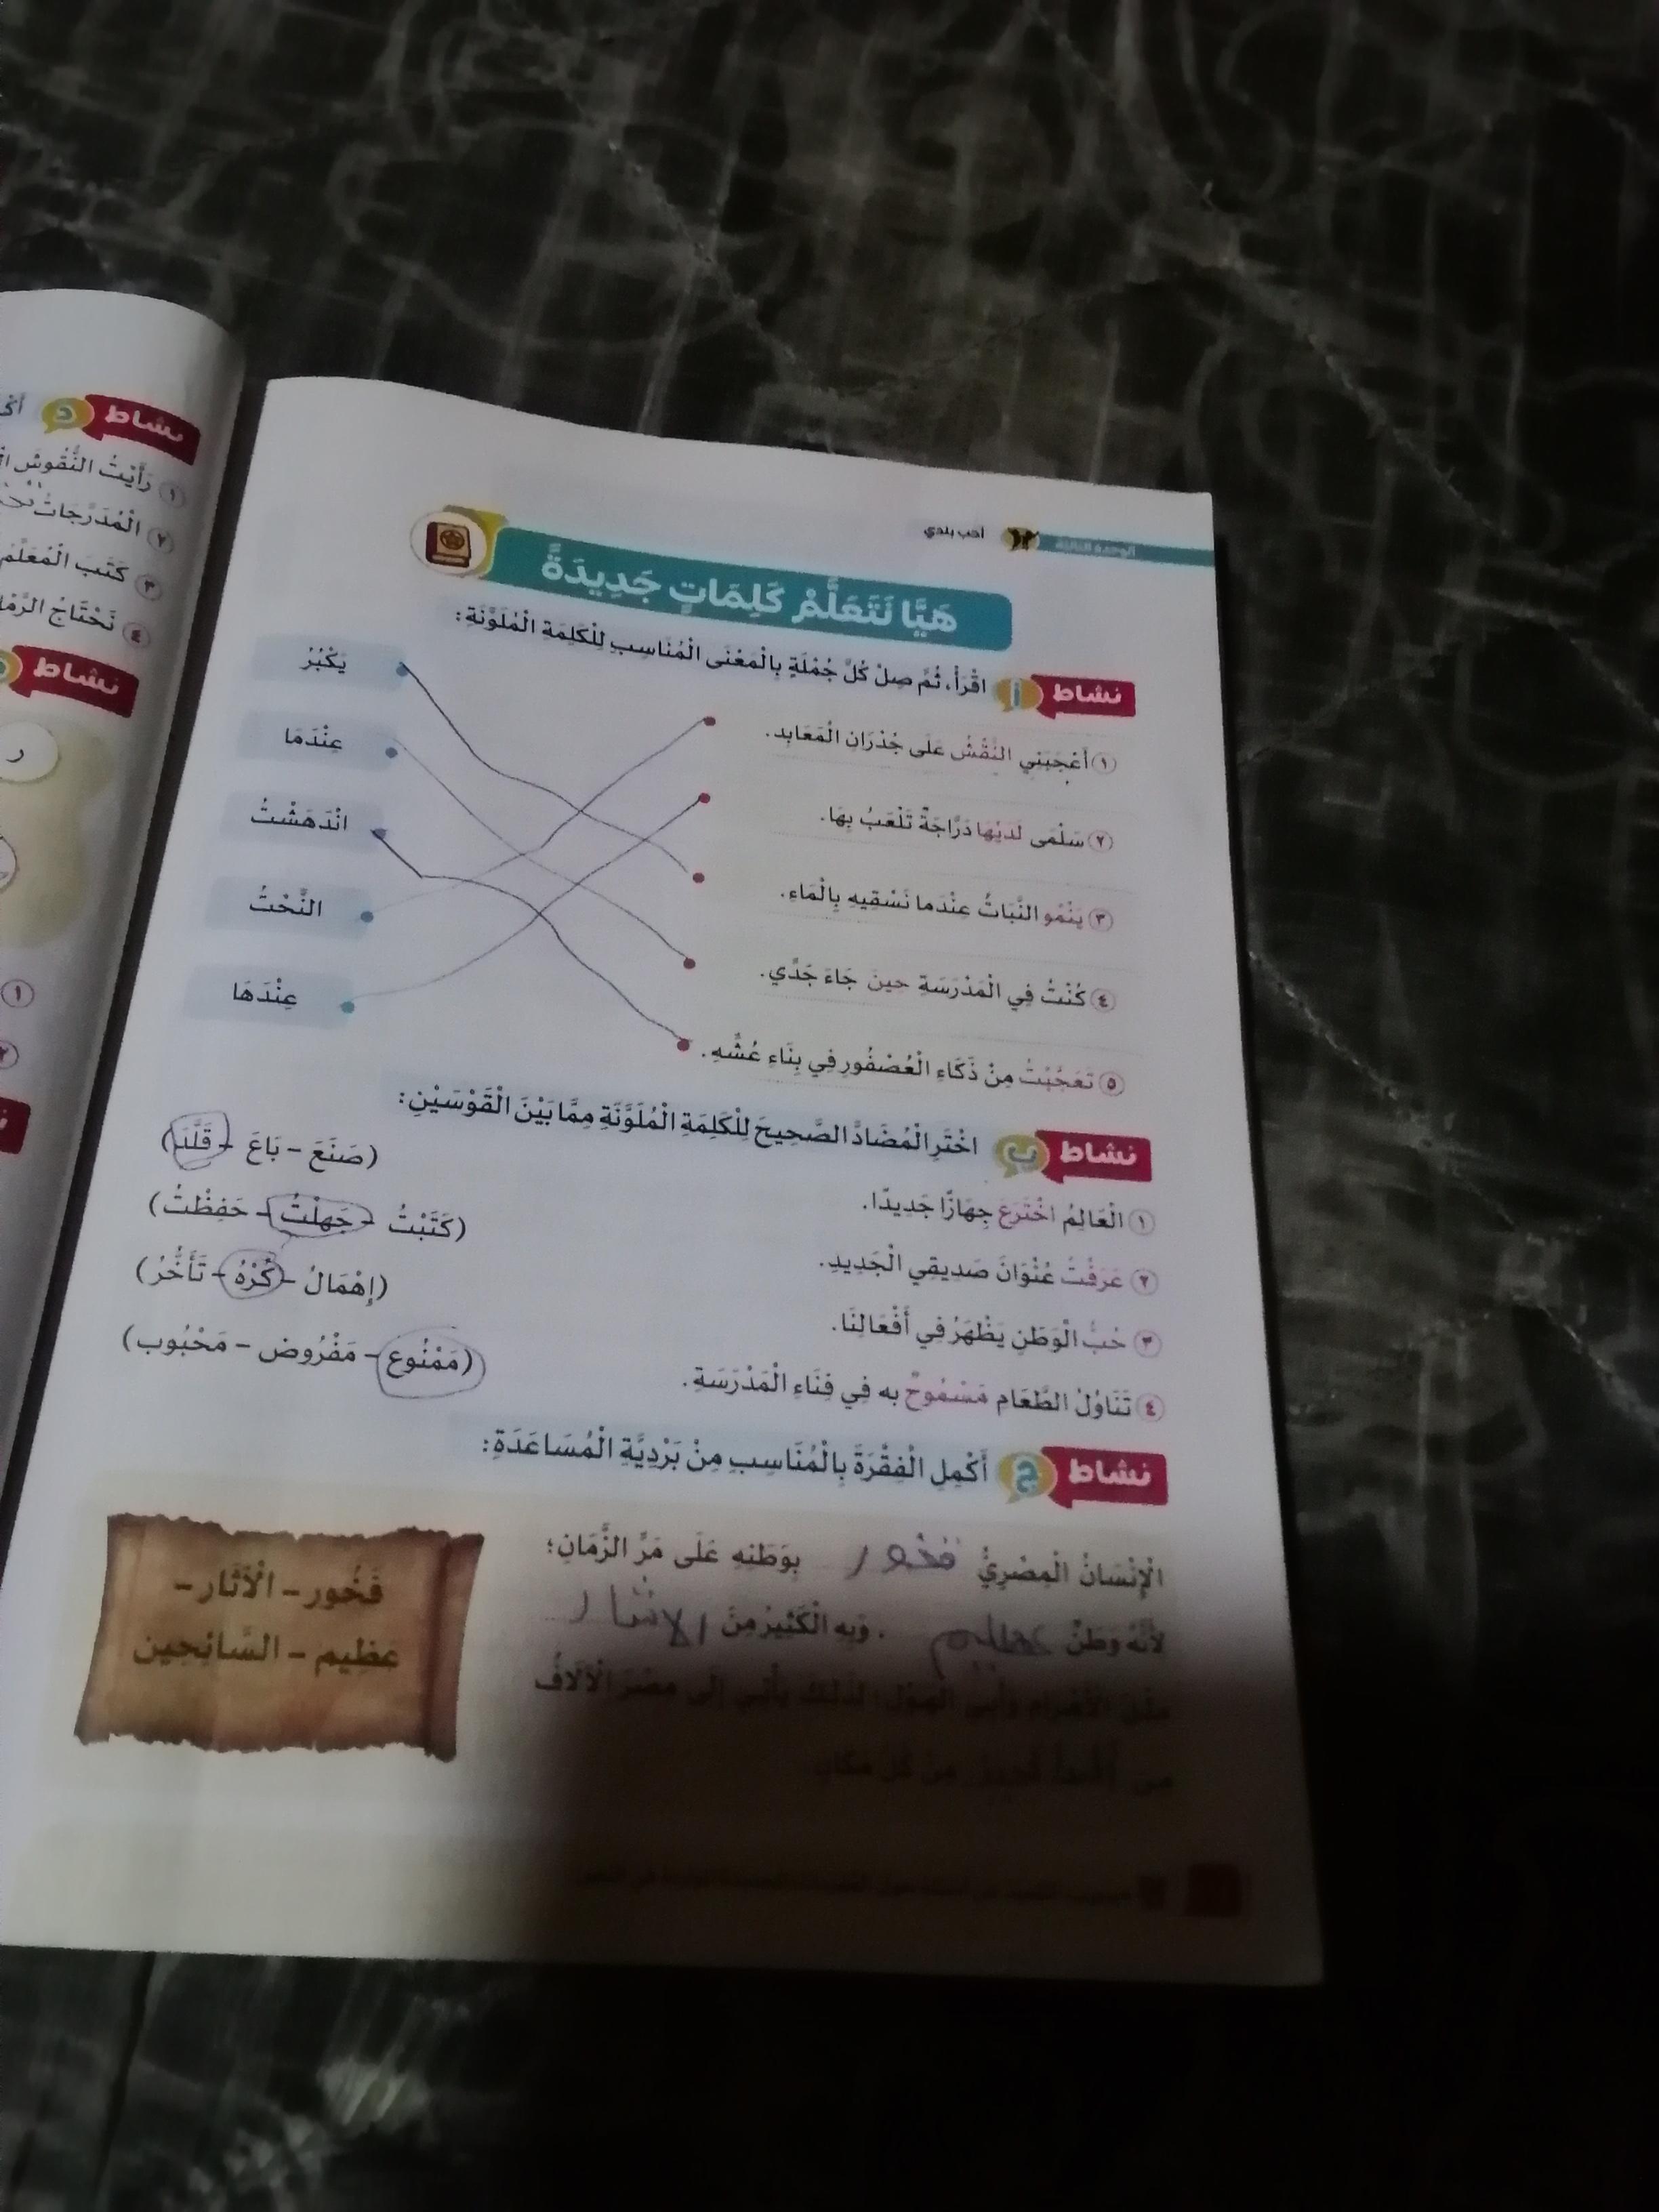 نشاط د
١ رَأَيْتُ النُّقُوشَ
٢ الْمُدَرَّجَاتُ
٣ كَتَبَ الْمُعَلِّمُ
٤ نَحْتَاجُ
نشاط
ر
١
٢
الوحدة الثالثة أحب بلدي
هَيَّا نَتَعَلَّمْ كَلِمَاتٍ جَدِيدَةً
نشاط أ اقْرَأْ، ثُمَّ صِلْ كُلَّ جُمْلَةٍ بِالْمَعْنَى الْمُنَاسِبِ لِلْكَلِمَةِ الْمُلَوَّنَةِ:
١ أَعْجَبَنِي النَّقْشُ عَلَى جُدْرَانِ الْمَعَابِدِ. يَكْبُرُ
٢ سَلْمَى لَدَيْهَا دَرَّاجَةٌ تَلْعَبُ بِهَا. عِنْدَمَا
٣ يَنْمُو النَّبَاتُ عِنْدَما نَسْقِيهِ بِالْمَاءِ. انْدَهَشْتُ
٤ كُنْتُ فِي الْمَدْرَسَةِ حينَ جَاءَ جَدِّي. النَّحْتُ
٥ تَعَجَّبْتُ مِنْ ذَكَاءِ الْعُصْفُورِ فِي بِنَاءِ عُشِّهِ. عِنْدَهَا
نشاط ب اخْتَرِ الْمُضَادَّ الصَّحِيحَ لِلْكَلِمَةِ الْمُلَوَّنَةِ مِمَّا بَيْنَ الْقَوْسَيْنِ:
١ الْعَالِمُ اخْتَرَعَ جِهَازًا جَدِيدًا. (صَنَعَ - بَاعَ - قَلَّدَ)
٢ عَرَفْتُ عُنْوَانَ صَدِيقِي الْجَدِيدِ. (كَتَبْتُ - جَهِلْتُ - حَفِظْتُ)
٣ حُبُّ الْوَطَنِ يَظْهَرُ فِي أَفْعَالِنَا. (إِهْمَالُ - كُرْهُ - تَأَخُّرُ)
٤ تَنَاوُلُ الطَّعَامِ مَسْمُوحٌ به فِي فِنَاءِ الْمَدْرَسَةِ. (مَمْنُوع - مَفْرُوض - مَحْبُوب)
نشاط ج أَكْمِلِ الْفِقْرَةَ بِالْمُنَاسِبِ مِنْ بَرْدِيَّةِ الْمُسَاعَدَةِ:
الْإِنْسَانُ الْمِصْرِيُّ فخور بِوَطَنِهِ عَلَى مَرِّ الزَّمَانِ؛
لِأَنَّهُ وَطَنٌ عظيم . وَبِهِ الْكَثِيرُ مِنَ الاثار
مثل الأهرام وأبي الهول؛ لذلك يأتي إلى مصر الْآلَافُ
من من كل مكان.
فَخُور - الْآثَار -
عظيم - السَّائِحِين